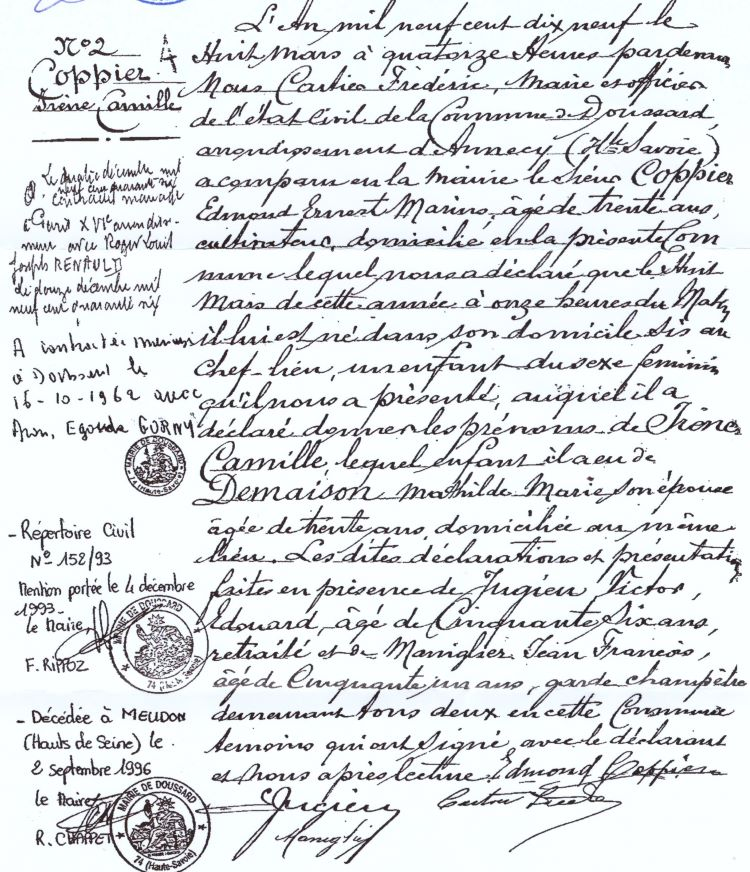 N°2
Coppier
Irène Camille
Le quatre décembre mil
neuf cent quarante six
a contracté mariage
à Paris XVIe arrondis-
avec Roger Louis
Joseph RENAULT
Le douze décembre mil
neuf cent quarante six
A contracté mariage
à Doussard le
16-10-1962 avec
GORNY
MAIRIE DE DOUSSARD
74 (Haute-Savoie)
- Répertoire Civil
N° 158/93
Mention portée le 4 décembre
1993-
le Maire,
F. RIPPOZ
MAIRIE DE DOUSSARD
74 (Hte de Savoie)
- Décédée à MEUDON
(Hauts de Seine) le
2 septembre 1996
le Maire,
R. CHAPPET
MAIRIE DE DOUSSARD
74 (Haute-Savoie)
L'An mil neuf cent dix neuf le
Huit Mars à quatorze Heures par devan
Nous Cartier Frédéric, Maire et officier
de l'état Civil de la Commune de Doussard,
arrondissement d'Annecy (Hte Savoie)
a comparu en la Mairie le Sieur Coppier
Edmond Ernest Marius, âgé de trente ans,
cultivateur, domicilié en la présente Com
mune lequel nous a déclaré que le Huit
Mars de cette année à onze heures du Matin
il lui est né dans son domicile sis au
Chef-lieu, un enfant du sexe féminin
qu'il nous a présenté, auquel il a
déclaré donner les prénoms de Irène
Camille, lequel enfant il a eu de
Demaison Mathilde Marie, son épouse
âgée de trente ans, domiciliée au même
lieu. Les dites déclarations et présentation
faites en présence de Jugieu Victor,
Edouard, âgé de Cinquante Six ans,
retraité et de Maniglier Jean François,
âgé de Cinquante un ans, garde champêtre
demeurant tous deux en cette Commune
témoins qui ont signé avec le déclarant
et Nous après lecture. Edmond Coppier
Jugieu
Maniglier